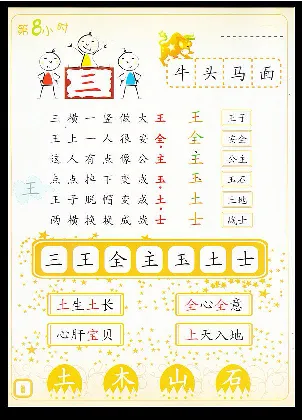 第8小时
三
牛头马面
三横一竖做大王 王 王子
王上一人很安全 全 安全
这人有点像公主 主 公主
点点掉下变成玉 玉 玉石
王子脱帽变成土 土 土地
两横换换成战士 士 战士
王
三王全主玉土士
土生土长 全心全意
心肝宝贝 上天入地
土 木 山 石